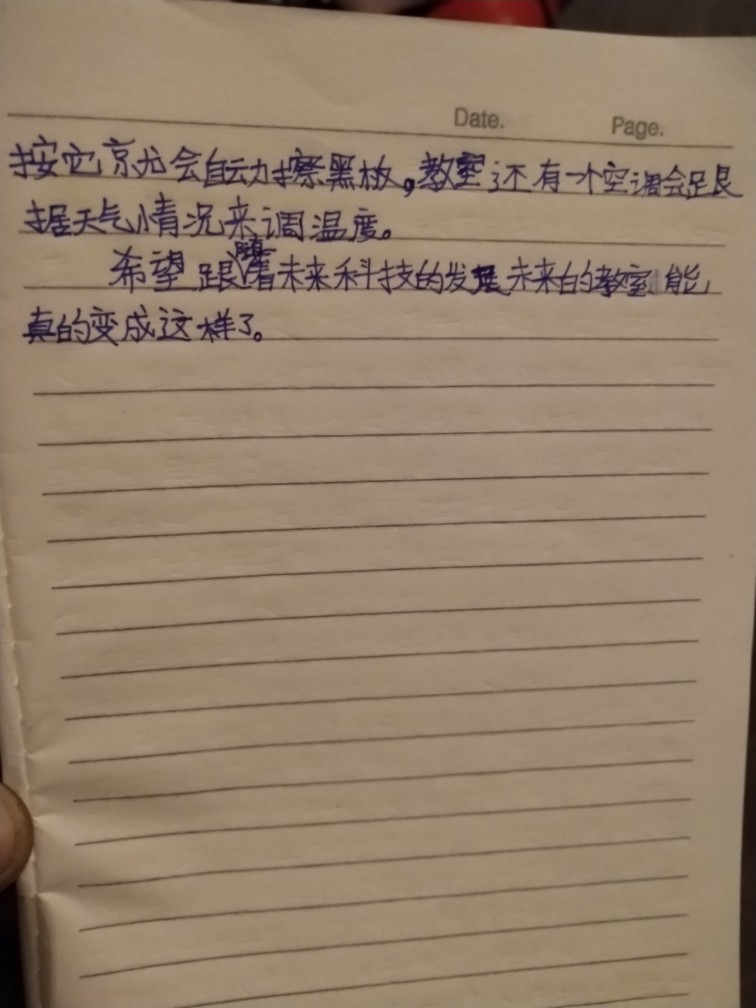 Date. Page.
按它就会自动擦黑板,教室还有一个空调会跟
据天气情况来调温度。
希望跟随着未来科技的发展未来的教室能
真的变成这样了。